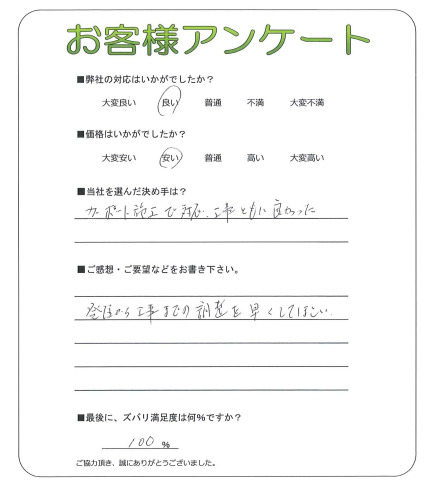 お客様アンケート
■弊社の対応はいかがでしたか?
大変良い 良い 普通 不満 大変不満
■価格はいかがでしたか?
大変安い 安い 普通 高い 大変高い
■当社を選んだ決め手は?
カーポート施工で対応、工事ともに良かった
■ご感想・ご要望などをお書き下さい。
発注から工事までの調整を早くしてほしい。
■最後に、ズバリ満足度は何%ですか?
100 %
ご協力頂き、誠にありがとうございました。